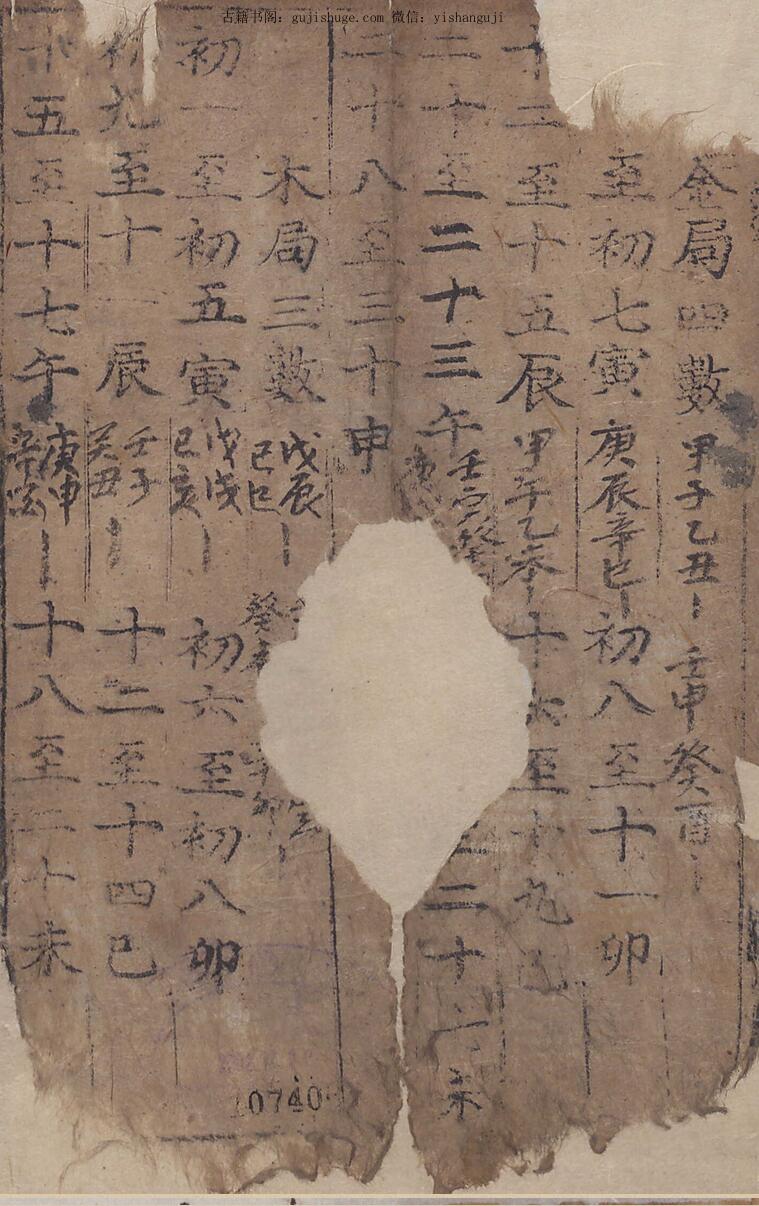 古籍书阁：gujishuge.com 微信：yishanguji
金局四數 甲子乙丑 壬申癸酉
至初七寅 庚辰辛巳 初八至十一卯
十二至十五辰 甲午乙未 十六至十九巳
二十至二十三午 壬寅癸 二十 未
二十八至三十申
木局三數 戊辰己巳
初一至初五寅 戊戌己亥 初六至初八卯
初九至十一辰 壬子癸丑 十二至十四巳
十五至十七午 庚申辛 十八至二十未
0740